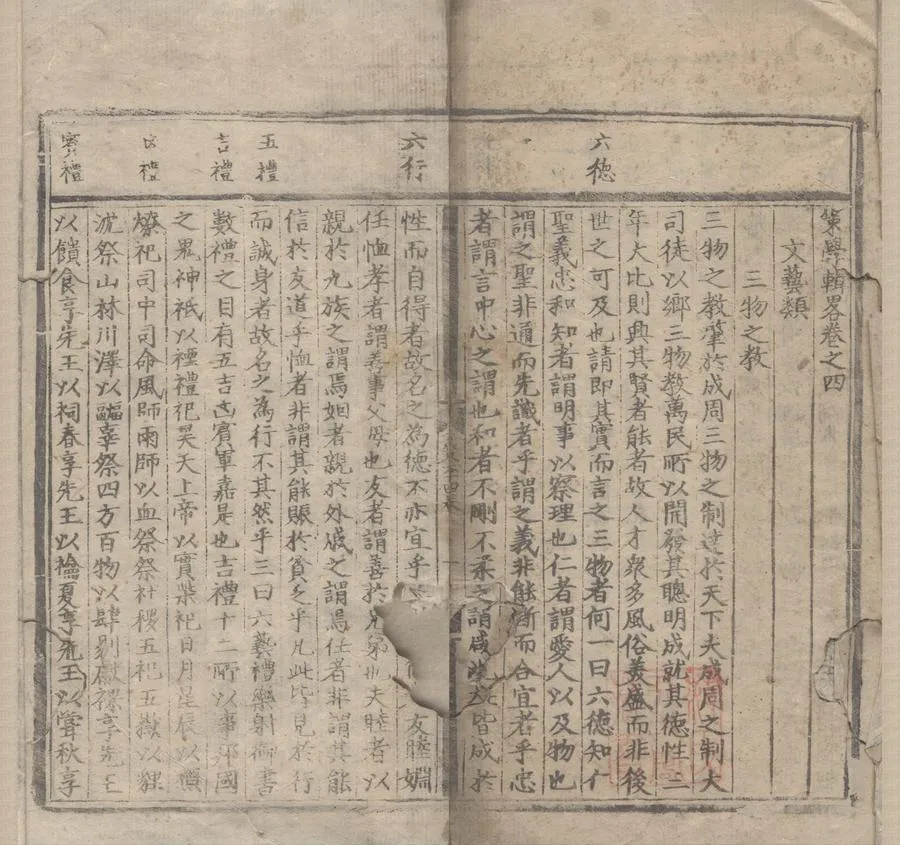 六德
策學輯畧卷之四
文藝類
三物之教
三物之教肇於成周三物之制達於天下夫成周之制大
司徒以鄉三物教萬民所以開發其聰明成就其德性三
年大比則興其賢者能者故人才衆多風俗美盛而非後
世之可及也請即其實而言之三物者何一曰六德知仁
聖義忠和知者謂明事以察理也仁者謂愛人以及物也
謂之聖非通而先識者乎謂之義非能斷而合宜者乎忠
者謂言中心之謂也和者不剛不柔之謂咸皆成於
六行
五禮
吉禮
凶禮
賓禮
性而自得者故名之為德不亦宜乎友睦婣
任恤孝者謂善事父母也友者謂善於兄弟也夫睦者以
親於九族之謂焉姻者親於外戚之謂焉任者非謂其能
信於友道乎恤者非謂其能賑於貧乏乎凡此皆見於行
而誠身者故名之為行不其然乎三曰六藝禮樂射御書
數禮之目有五吉凶賓軍嘉是也吉禮十二所以事邦國
之鬼神祇以禋禮祀昊天上帝以實柴祀日月星辰以槱
燎祀司中司命風師雨師以血祭祭社稷五祀五嶽以貍
沈祭山林川澤以疈辜祭四方百物以肆獻祼享先王
以饋食享先王以祠春享先王以禴夏享先王以嘗秋享